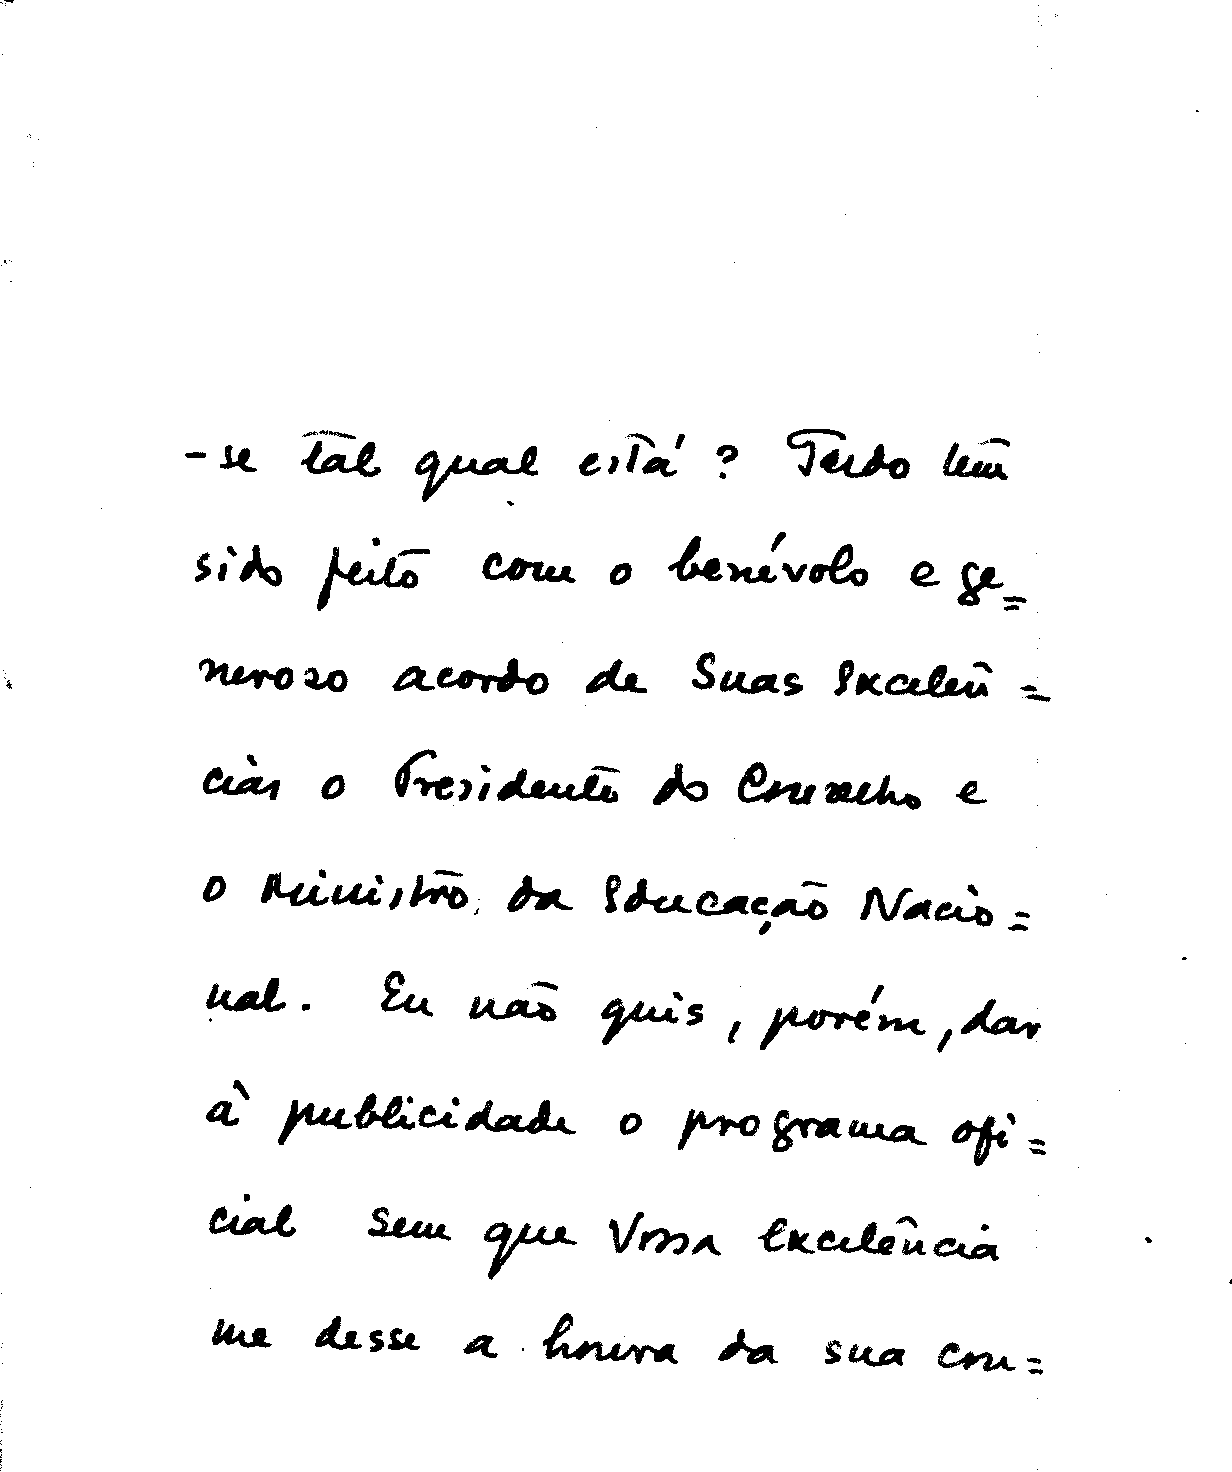 -se tal qual está? Tudo tem
sido feito com o benévolo e ge=
neroso acordo de Suas Excelên=
cias o Presidente do Conselho e
o Ministro da Educação Nacio=
nal. Eu não quis, porém, dar
à publicidade o programa ofi=
cial sem que Vossa Excelência
me desse a honra da sua con=